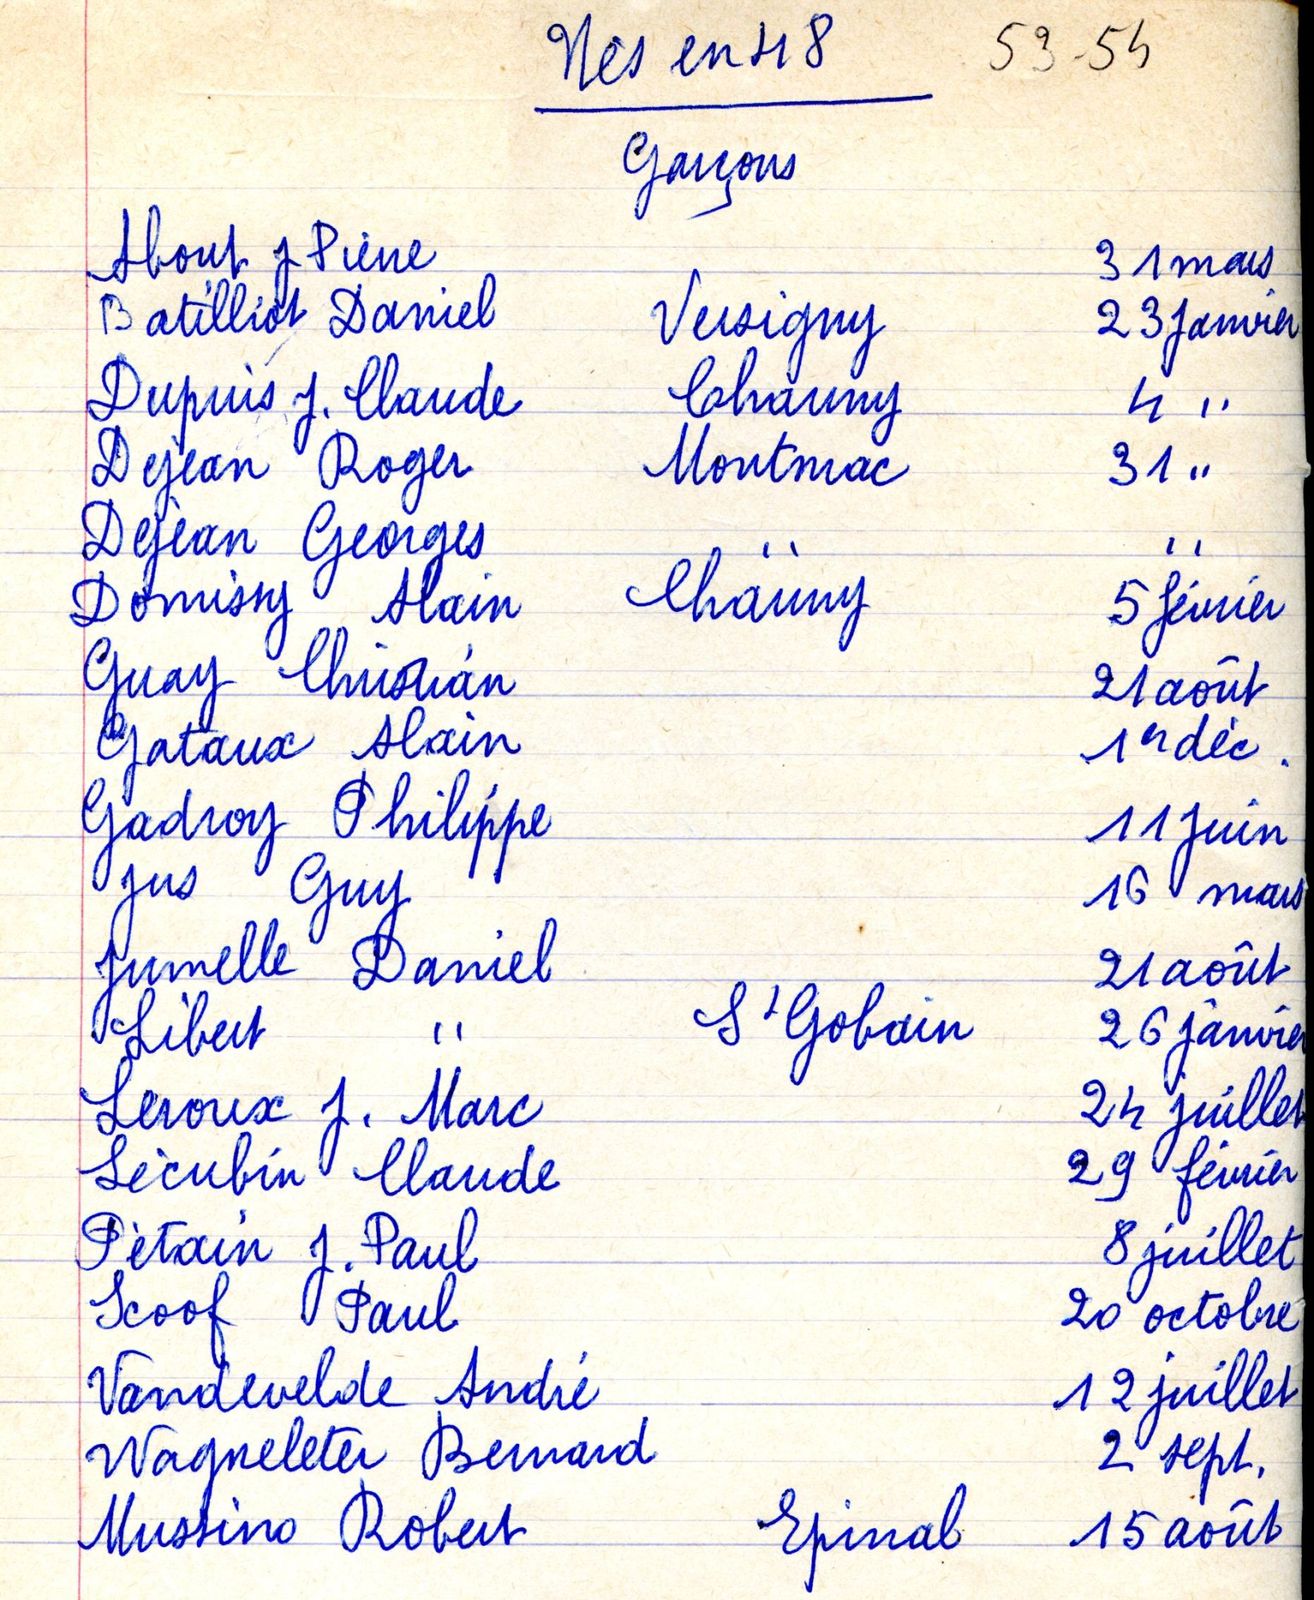 Nés en 48 53-54
Garçons
About J Pierre 31 mars
Batilliot Daniel Versigny 23 janvier
Dupuis J. Claude Chauny 4 "
Dejean Roger Montmac 31 "
Dejean Georges " "
Domissy Alain Chauny 5 février
Guay Christian 21 août
Gataux Alain 1er déc.
Gadroy Philippe 11 juin
Jus Guy 16 mars
Jumelle Daniel 21 août
Libert " St Gobain 26 janvier
Leroux J. Marc 24 juillet
Lécubin Claude 29 février
Pétain J. Paul 8 juillet
Scoof Paul 20 octobre
Vandevelde André 12 juillet
Wagneleter Bernard 2 sept.
Mussino Robert Epinal 15 août